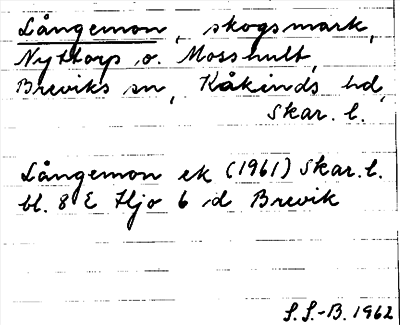 Långemon, skogsmark,
Nyttorp o. Mosshult,
Breviks sn, Kåkinds hd,
Skar. l.
Långemon ek (1961) Skar. l.
bl. 8 E Hjo 6 d Brevik
S.S.-B. 1962